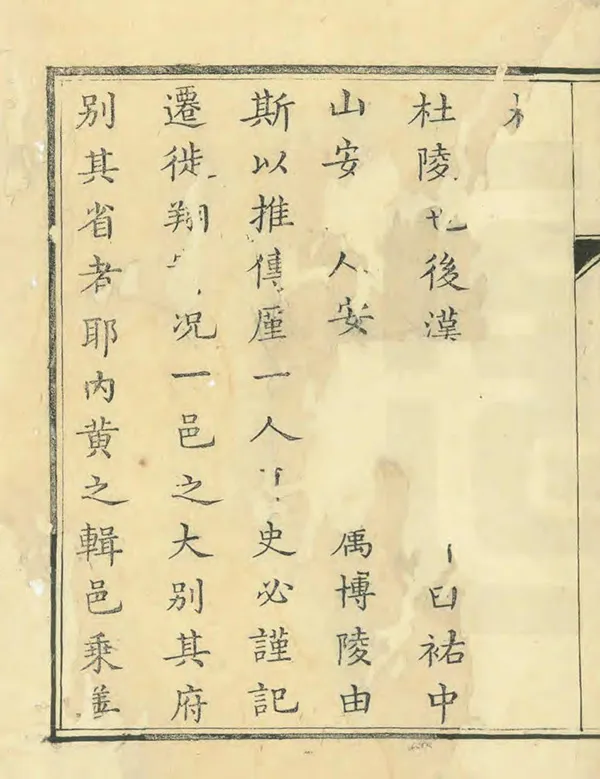 杜陵 後漢 祐中
山安 人安 禹博陵由
斯以推傳厪一人 史必謹記
遷徙翔 况一邑之大别其府
别其省者耶内黄之輯邑乗蓋